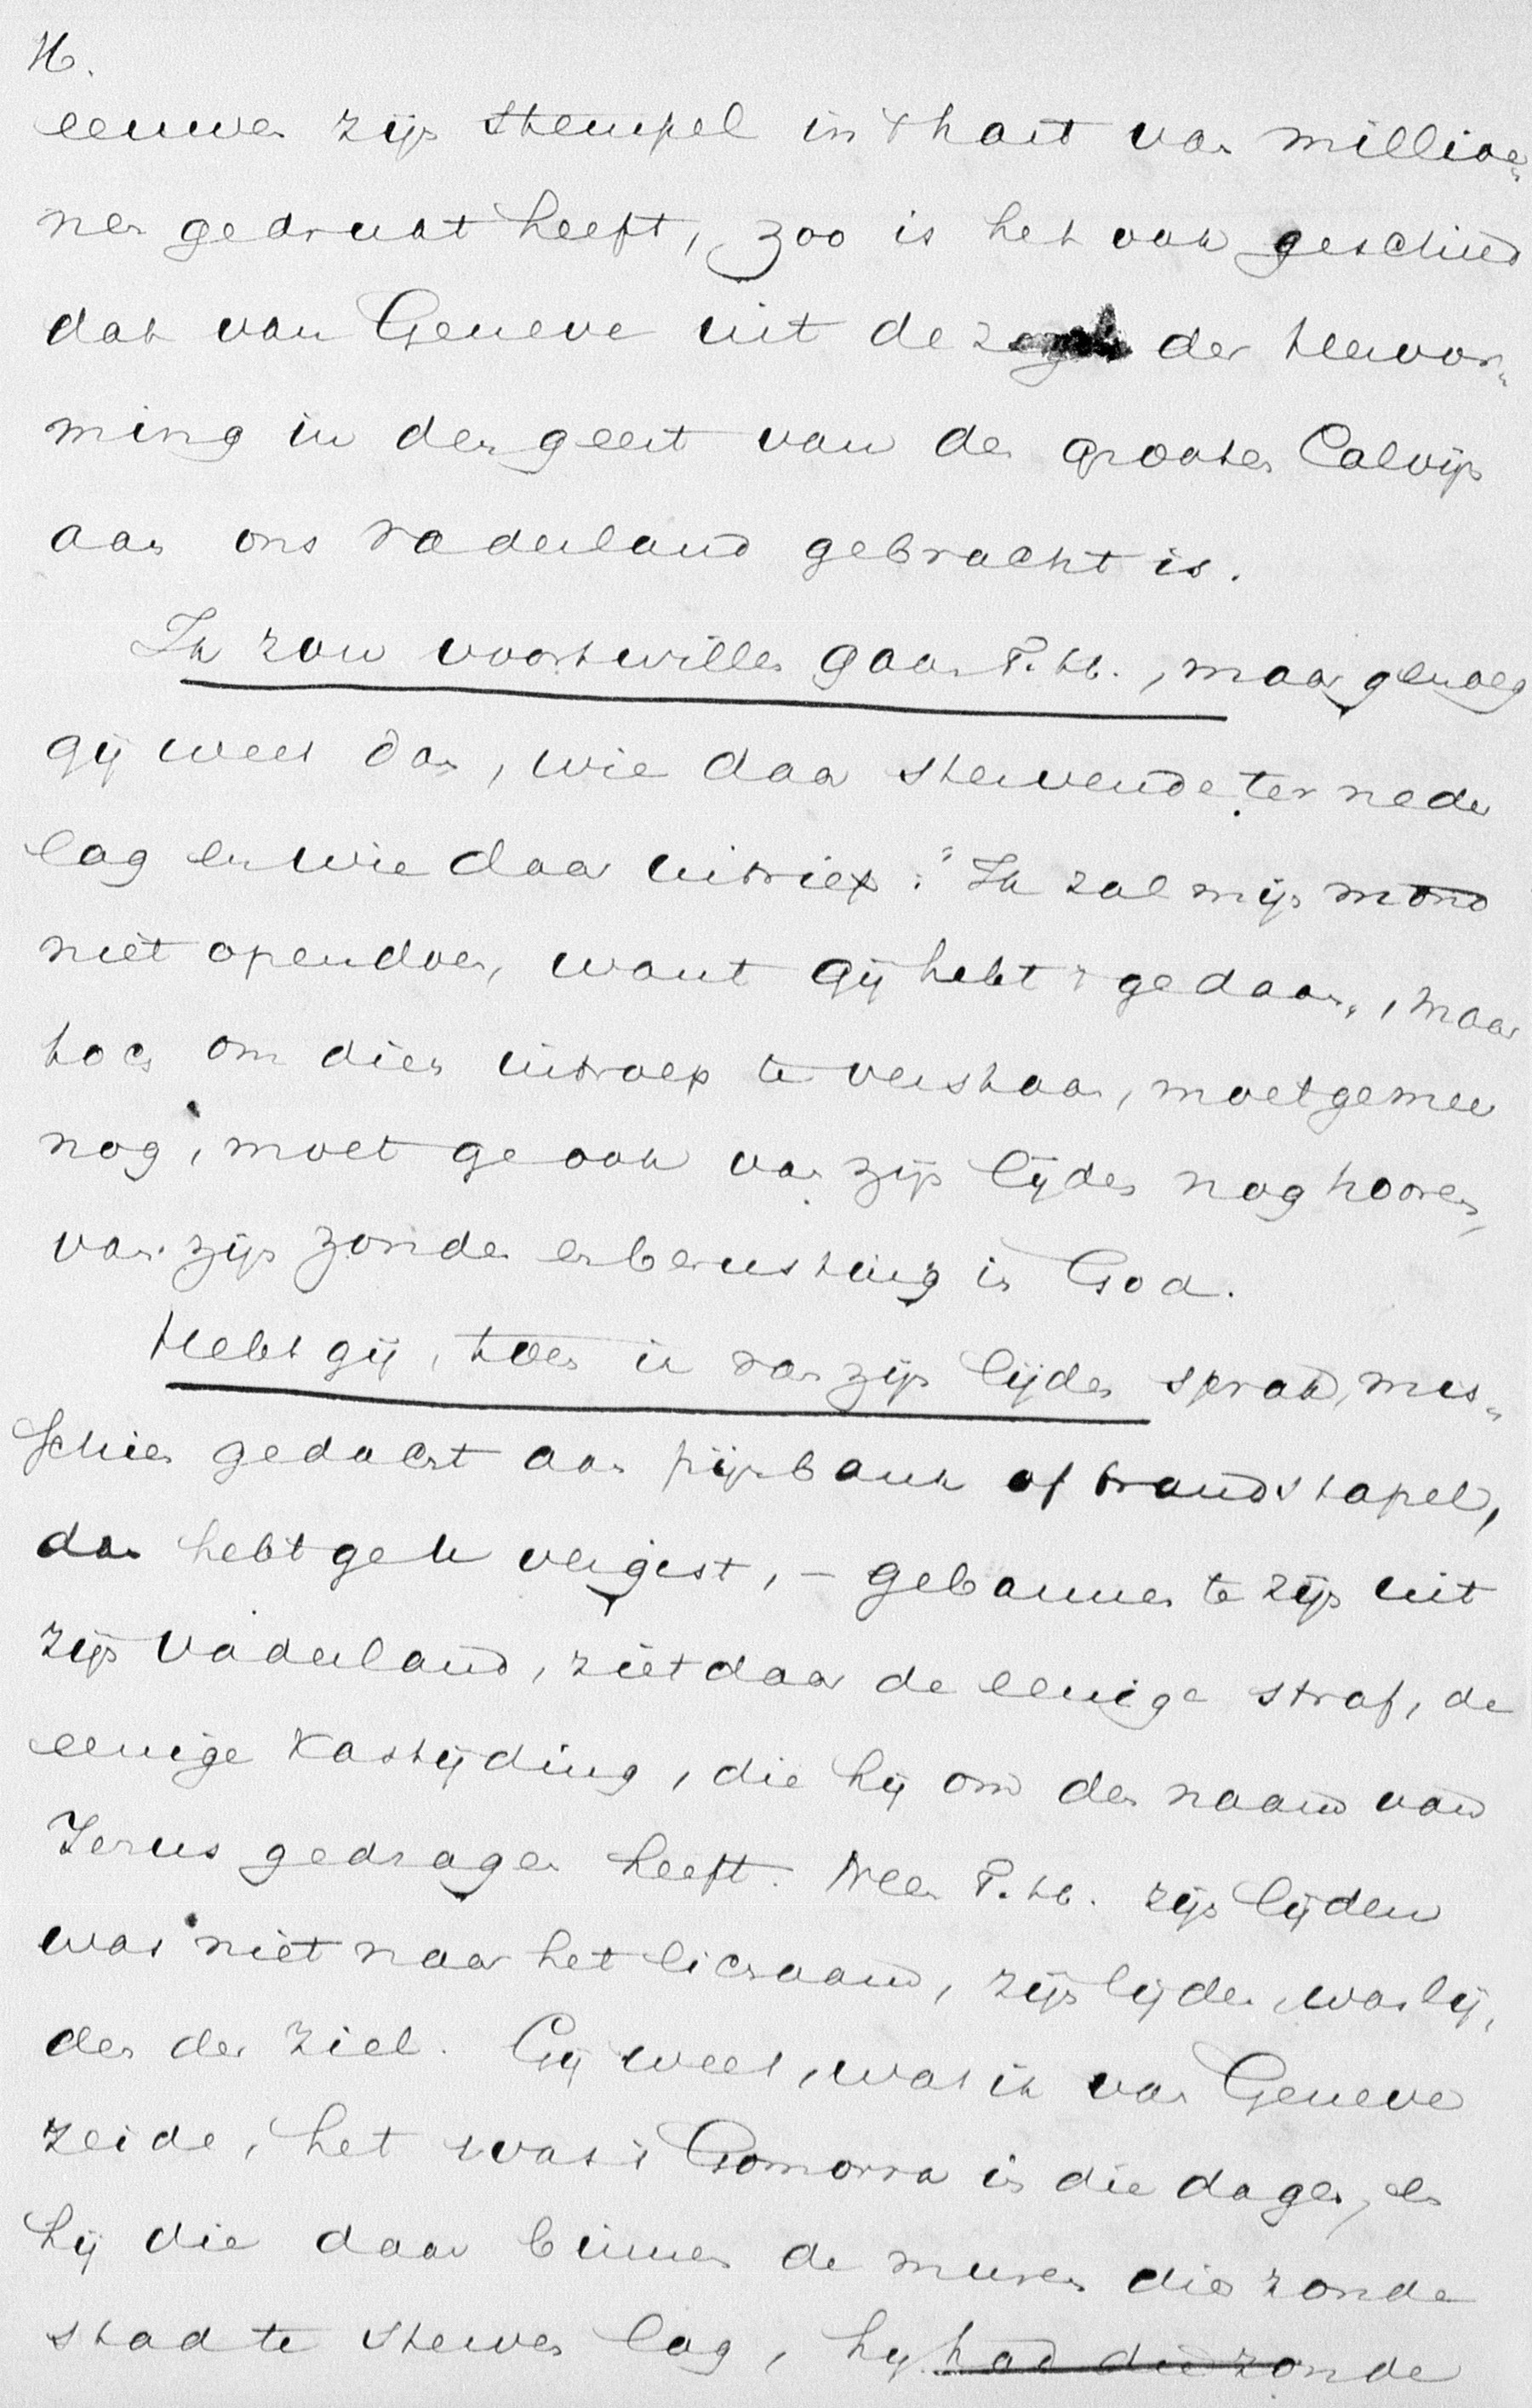 16.
eeuwen zijn stempel in 't hart van millioe„
nen gedrukt heeft, zoo is het ook geschied
dat van Geneve uit de zegen der hervor„
ming in den geest van den grooten Calvijn
aan ons vaderland gebracht is.
Ik zou voort willen gaan T. H., maar genoeg
gij weet dan, wie daar stervende ter neder
lag en wie daar uitriep: "Ik zal mijn mond
niet opendoen, want gij hebt 't gedaan„, maar
toch om dien uitroep te verstaan, moet ge meer
nog, moet ge ook van zijn lijden nog hooren,
van zijn zonde en berusting in God.
Hebt gij, toen ik van zijn lijden sprak, mis„
schien gedacht aan pijnbank of brandstapel,
dan hebt ge u vergist, – gebannen te zijn uit
zijn vaderland, ziet daar de eenige straf, de
eenige kastijding, die hij om den naam van
Jezus gedragen heeft. Neen T. H. zijn lijden
was niet naar het lichaam, zijn lijden was lij„
den der ziel. Gij weet, wat ik van Geneve
zeide, het was 't Gomorra in die dagen, en
hij die daar binnen de muren dier zonde
stad te sterven lag, hij had die zonde